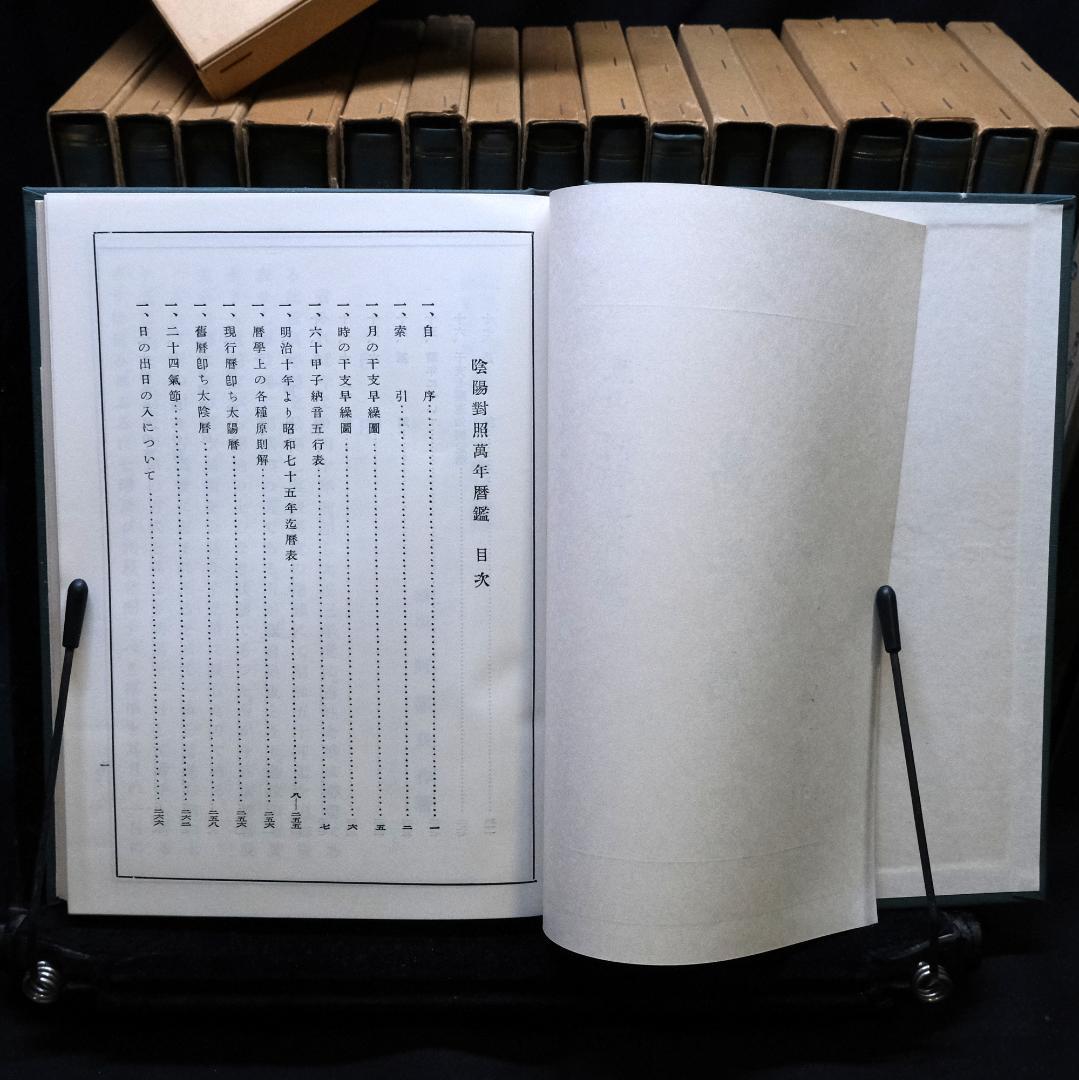 陰陽對照萬年暦鑑　目次
一、自　序…………一
一、索　引…………二
一、月の干支早繰圖…………五
一、時の干支早繰圖…………六
一、六十甲子納音五行表…………七
一、明治十年より昭和七十五年迄暦表…………八—二五五
一、暦學上の各種原則解…………二五六
一、現行暦卽ち太陽暦…………二五六
一、舊暦卽ち太陰暦…………二五八
一、二十四氣節…………二六二
一、日の出日の入について…………二六六
一